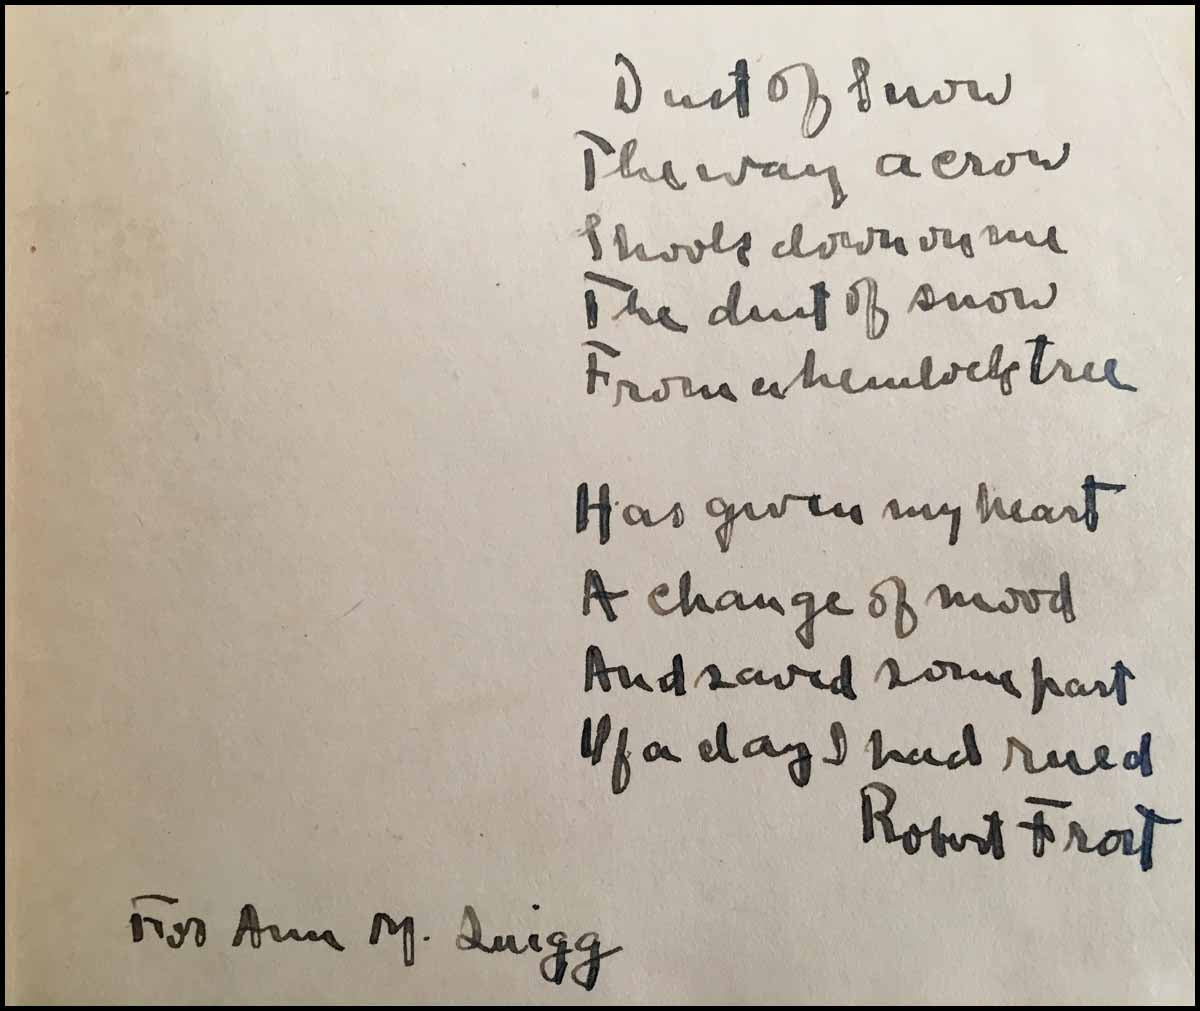 Dust of Snow
The way a crow
Shook down on me
The dust of snow
From a hemlock tree
Has given my heart
A change of mood
And saved some part
Of a day I had rued
Robert Frost
For Ann M. Quigg